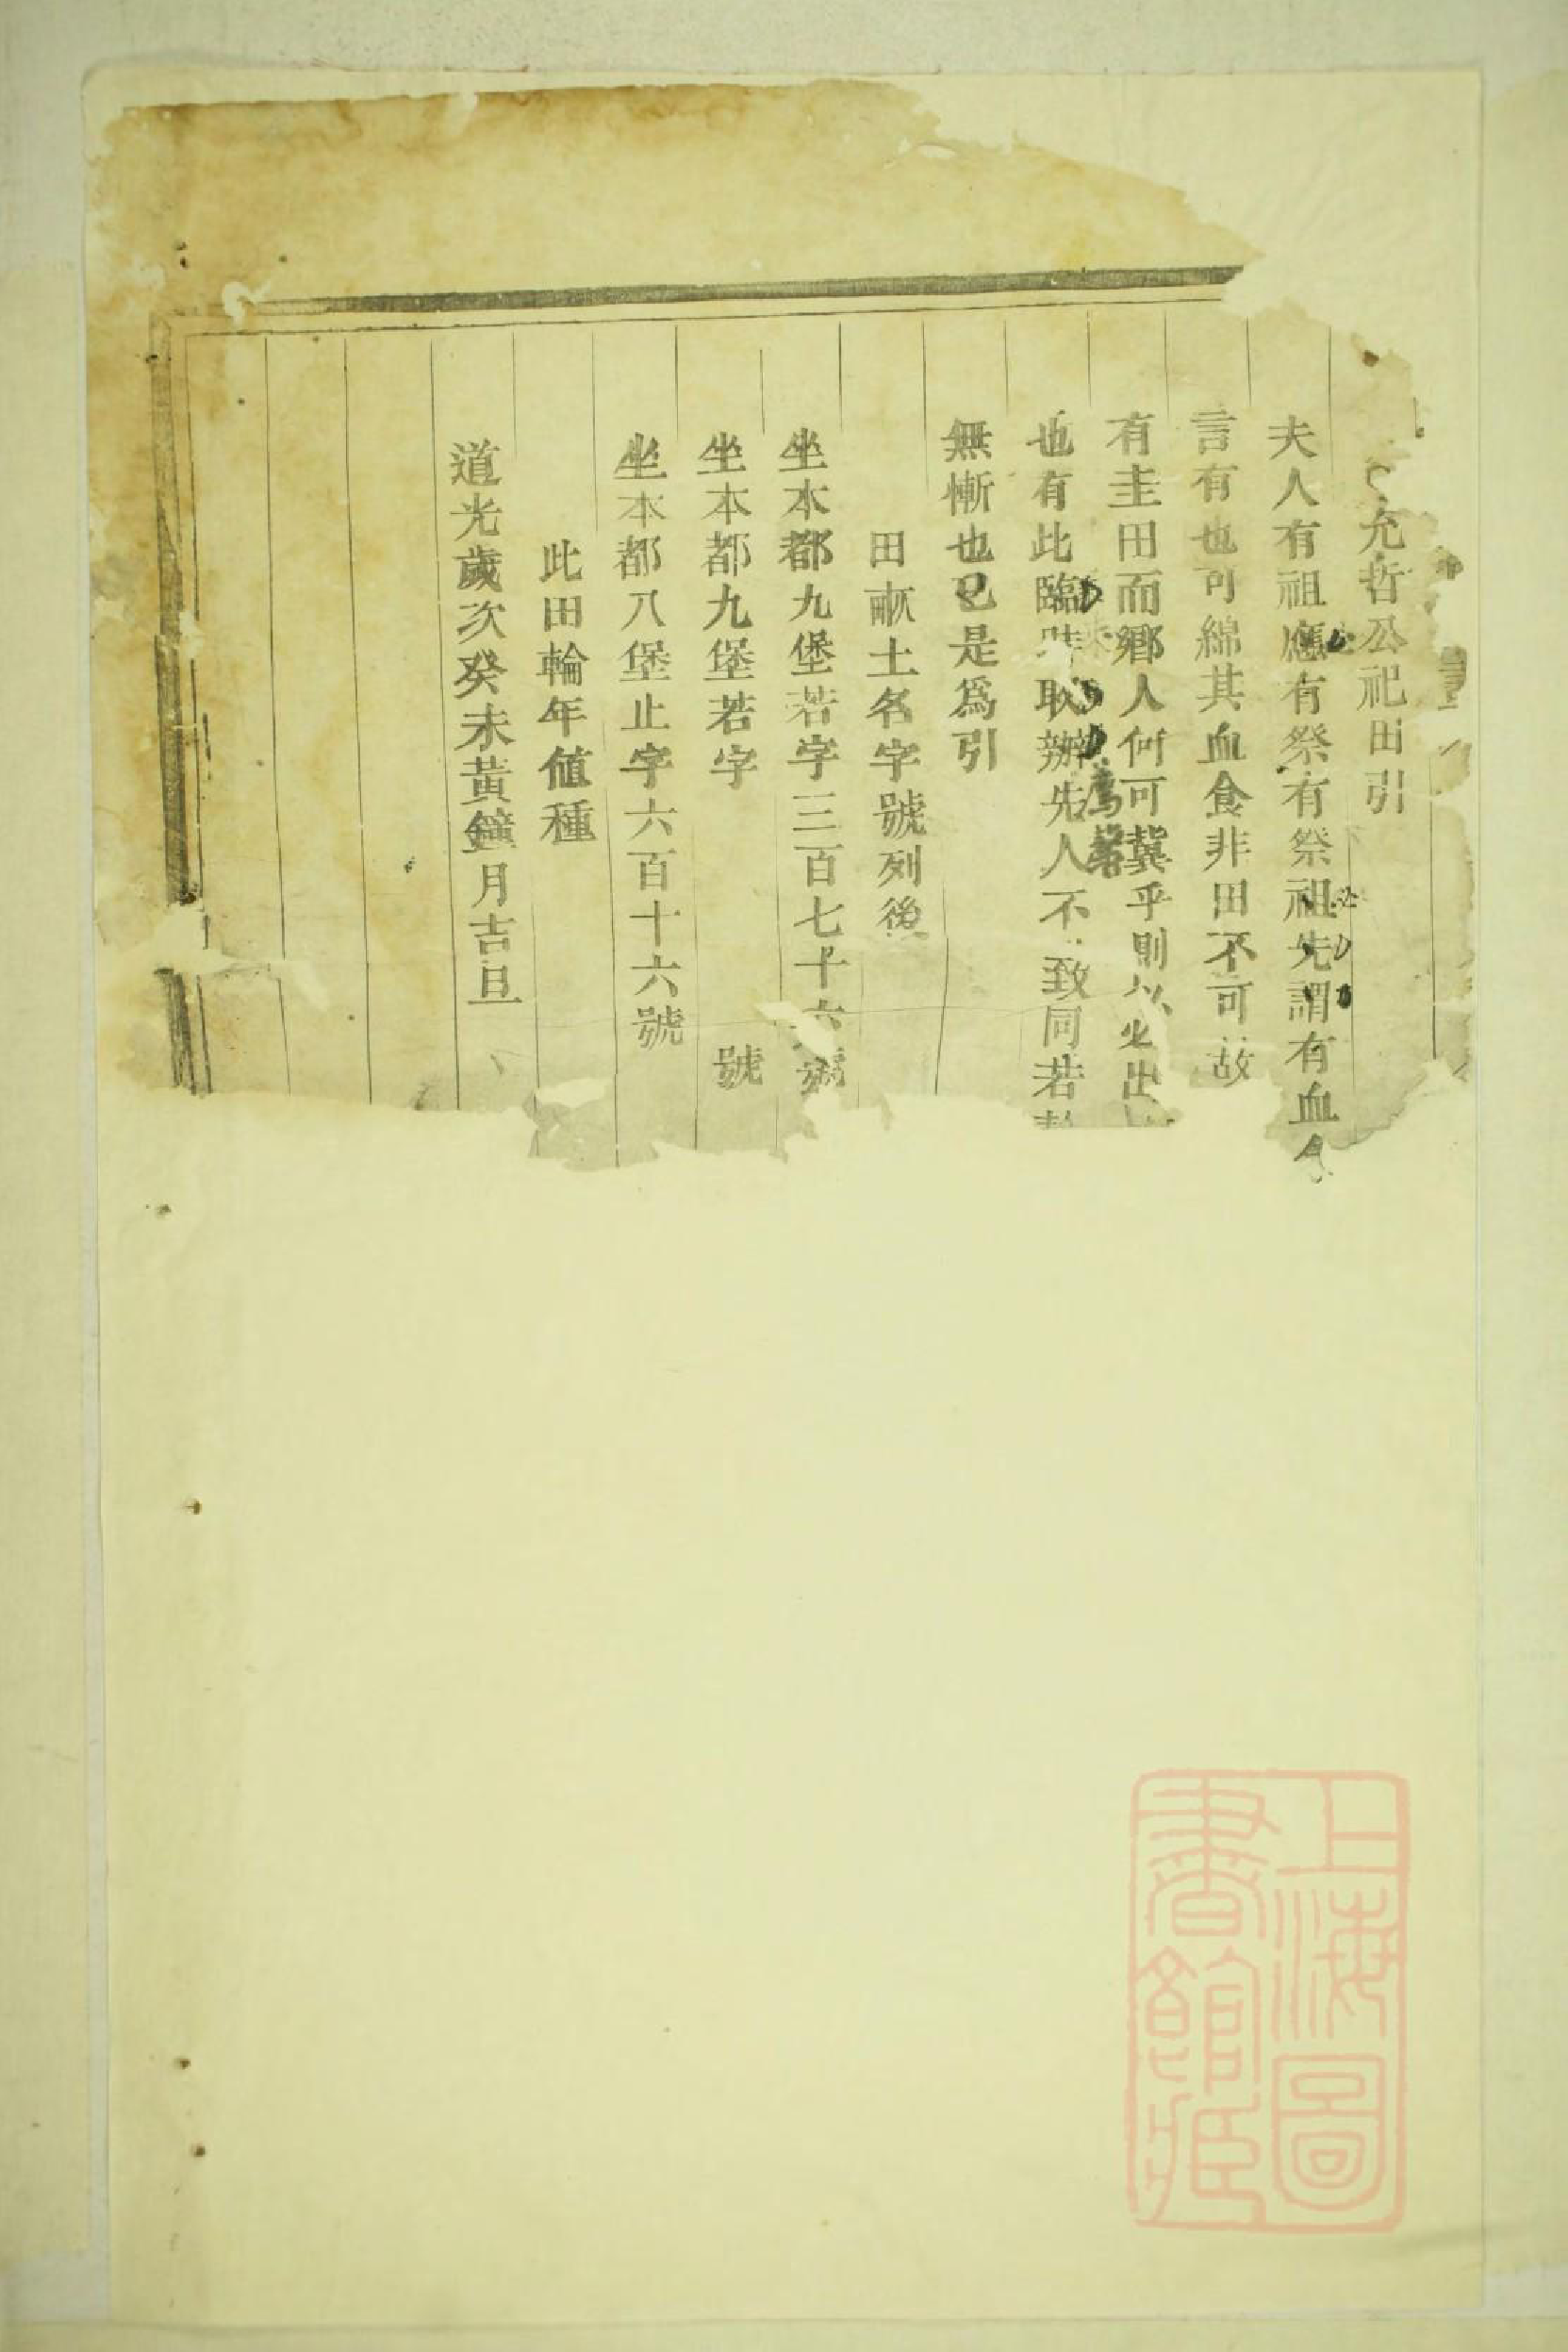 允哲公祀田引
夫人有祖應有祭有祭祖先謂有血食
言有也可綿其血食非田不可故
有圭田而鄉人何可冀乎則以出
也有此臨時取辦先人不致同若
無慚也已是爲引
田畝土名字號列後
坐本都九堡若字三百七十六號
坐本都九堡若字 號
坐本都八堡止字六百十六號
此田輪年值種
道光歲次癸未黃鐘月吉旦
上海圖
書館藏